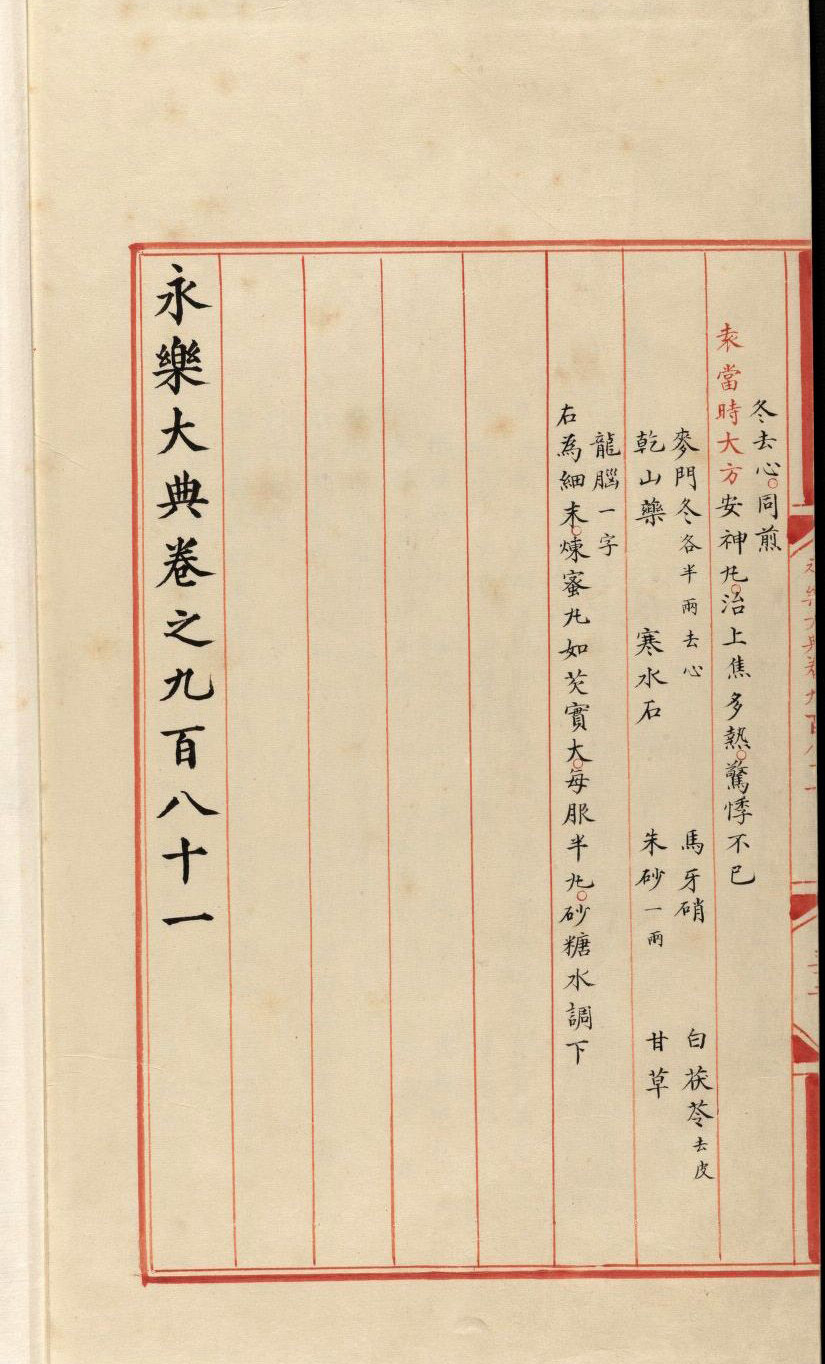 永樂大典卷九百八十一
冬去心。同煎
袁當時大方安神丸。治上焦多熱。驚悸不已
麥門冬各半兩去心　馬牙硝　白茯苓去皮
乾山藥　寒水石　朱砂一兩　甘草
龍腦一字
右為細末。煉蜜丸如芡實大。每服半丸。砂糖水調下
永樂大典卷之九百八十一